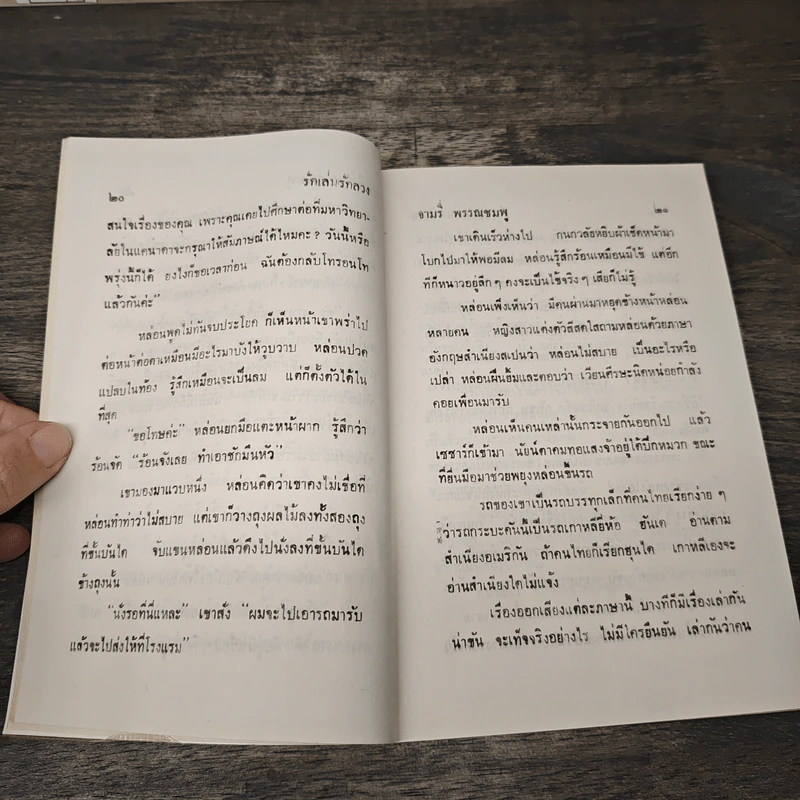 ๒๐
รักเล่มรักลวง
สนใจเรื่องของคุณ เพราะคุณเคยไปศึกษาต่อที่มหาวิทยา-
ลัยในแคนาดาจะกรุณาให้สัมภาษณ์ได้ไหมคะ ? วันนี้หรือ
พรุ่งนี้ก็ได้ ยังไงก็ขอเวลาก่อน ฉันต้องกลับโทรอนโท
แล้วกันค่ะ”
หล่อนพูดไม่ทันจบประโยค ก็เห็นหน้าเขาพร่าไป
ต่อหน้าต่อตาเหมือนมีอะไรมาบังให้วูบวาบ หล่อนปวด
แปลบในท้อง รู้สึกเหมือนจะเป็นลม แต่ก็ตั้งตัวได้ใน
ที่สุด
“ขอโทษค่ะ” หล่อนยกมือแตะหน้าผาก รู้สึกว่า
ร้อนจัด “ร้อนจังเลย ทำเอาชักมึนหัว”
เขามองมาแวบหนึ่ง หล่อนคิดว่าเขาคงไม่เชื่อที่
หล่อนทำท่าว่าไม่สบาย แต่เขาก็วางถุงผลไม้ลงทั้งสองถุง
ที่ขั้นบันได จับแขนหล่อนแล้วดึงไปนั่งลงที่ขั้นบันได
ข้างถุงนั้น
“นั่งรอที่นี่แหละ” เขาสั่ง “ผมจะไปเอารถมารับ
แล้วจะไปส่งให้ที่โรงแรม”
จามรี พรรณชมพู
๒๑
เขาเดินเร็วห่างไป กนกวลัยหยิบผ้าเช็ดหน้ามา
โบกไปมาให้พอมีลม หล่อนรู้สึกร้อนเหมือนมีไข้ แต่อีก
ทีก็หนาวอยู่ลึก ๆ คงจะเป็นไข้จริง ๆ เสียก็ไม่รู้
หล่อนเพิ่งเห็นว่า มีคนผ่านมาหยุดข้างหน้าหล่อน
หลายคน หญิงสาวแต่งตัวสีสดใสถามหล่อนด้วยภาษา
อังกฤษสำเนียงสเปนว่า หล่อนไม่สบาย เป็นอะไรหรือ
เปล่า หล่อนฝืนยิ้มและตอบว่า เวียนศีรษะนิดหน่อยกำลัง
คอยเพื่อนมารับ
หล่อนเห็นคนเหล่านั้นกระจายกันออกไป แล้ว
เซซาร์ก็เข้ามา นัยน์ตาคมทอแสงจ้าอยู่ใต้ปีกหมวก ขณะ
ที่ยื่นมือมาช่วยพยุงหล่อนขึ้นรถ
รถของเขาเป็นรถบรรทุกเล็กที่คนไทยเรียกง่าย ๆ
ว่ารถกระบะคันนี้เป็นรถเกาหลียี่ห้อ ฮันเด อ่านตาม
สำเนียงอเมริกัน ถ้าคนไทยก็เรียกฮุนได เกาหลีเองจะ
อ่านสำเนียงใดไม่แจ้ง
เรื่องออกเสียงแต่ละภาษานี้ บางทีก็มีเรื่องเล่ากัน
น่าขัน จะเท็จจริงอย่างไร ไม่มีใครยืนยัน เล่ากันว่าคน